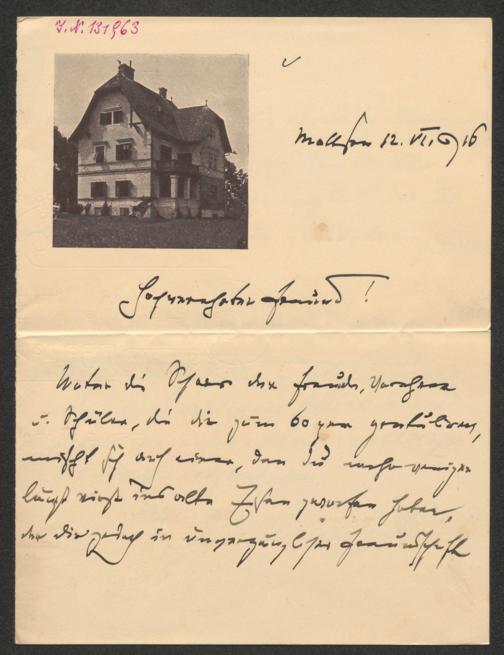 I. N. 131963
12. VI. 1916
Hochverehrter Freund!
Unter die Schaar der Freunde, Verehrer
u. Schüler, die dir zum 60ger gratuliren,
mischt sich auch einer, den du mehr weniger
längst schon ins alte Eisen geworfen haben,
der dir jedoch in unvergänglicher Freundschaft